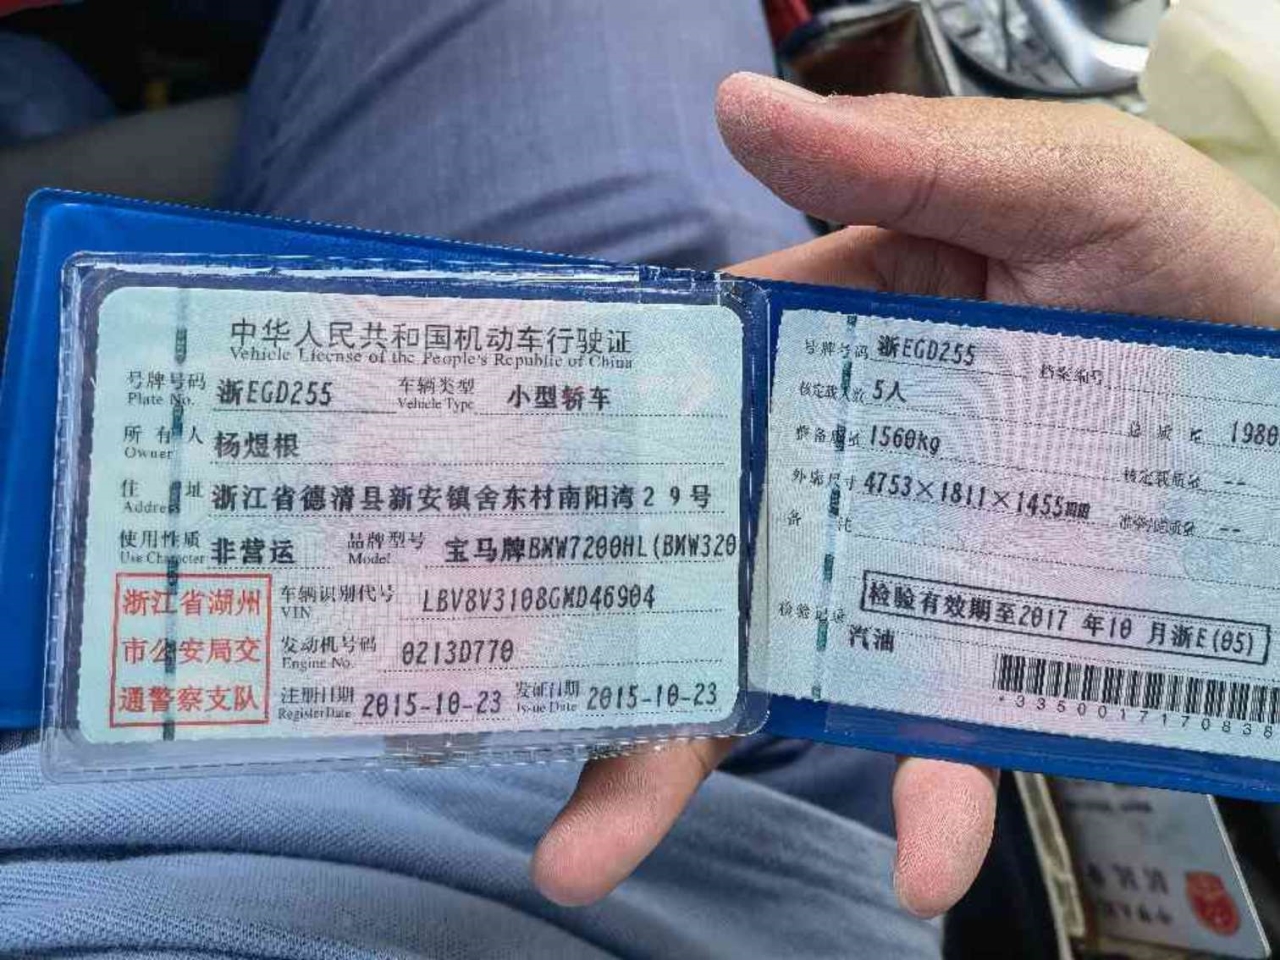 中华人民共和国机动车行驶证
Vehicle License of the People's Republic of China
号牌号码 浙EGD255 车辆类型 小型轿车
Plate No. Vehicle Type
所有人 杨煜根
Owner
住址 浙江省德清县新安镇舍东村南阳湾29号
Address
使用性质 非营运 品牌型号 宝马牌BMW7200HL(BMW320
Use Character Model
车辆识别代号 LBV8V3108GMD46904
VIN
发动机号码 0213D770
Engine No.
注册日期 2015-10-23 发证日期 2015-10-23
Register Date Issue Date
浙江省湖州
市公安局交
通警察支队
号牌号码 浙EGD255 档案编号
核定载人数 5人
整备质量 1560kg 总质量 1980
核定载质量 --
外廓尺寸 4753×1811×1455mm 准牵引总质量 --
备注
检验记录 检验有效期至2017年10月浙E(05)
汽油
*3350017170838